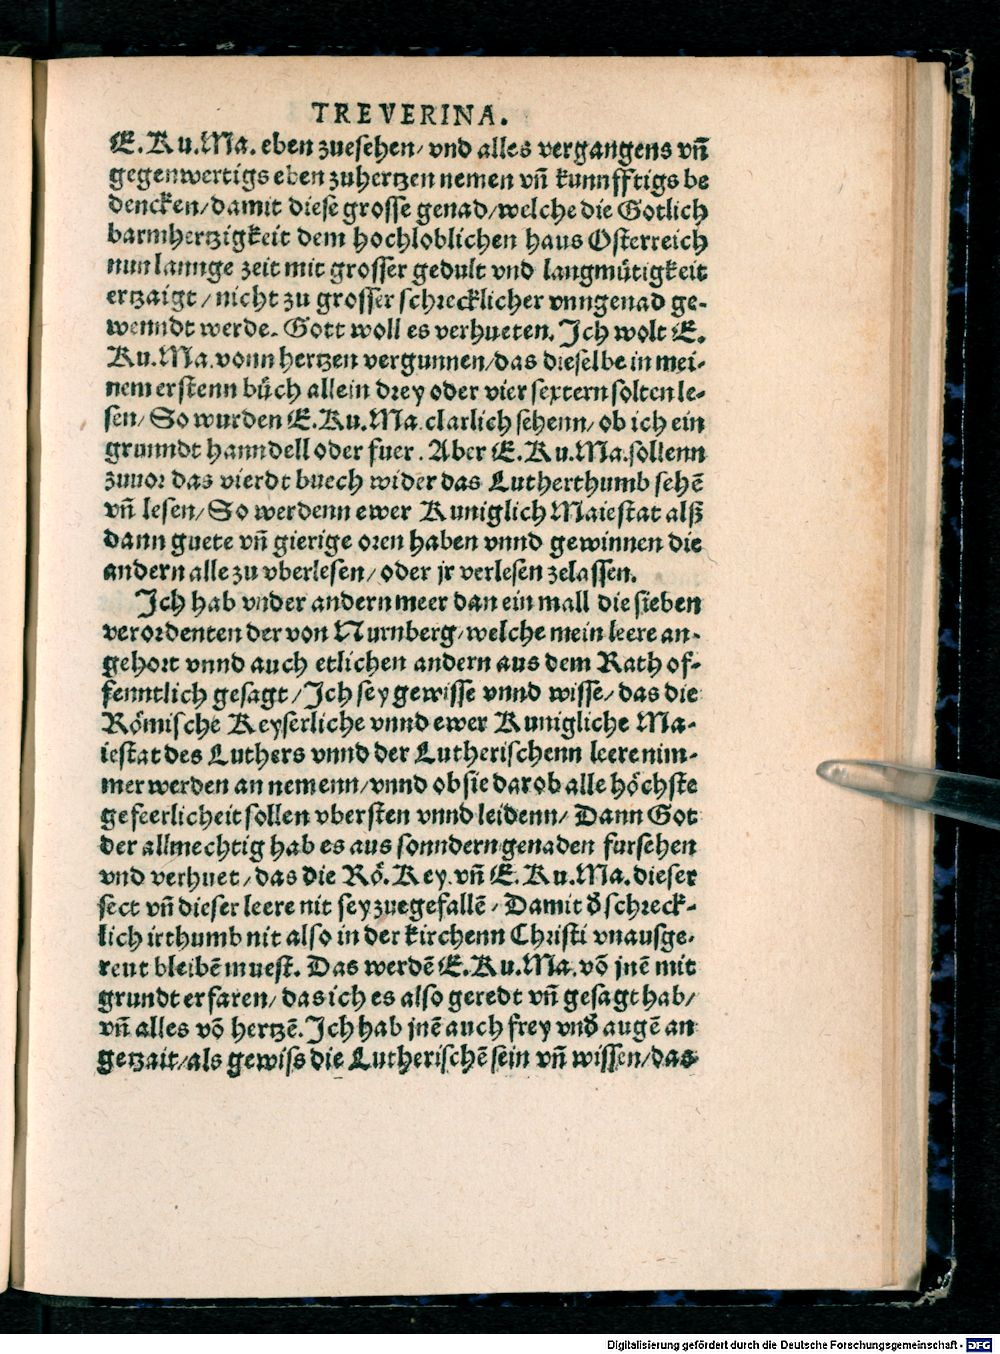 TREVERINA.
E. Ku. Ma. eben zuesehen/ vnd alles vergangens vñ
gegenwertigs eben zuhertzen nemen vñ kunnfftigs be
dencken/ damit diese grosse genad/ welche die Gotlich
barmhertzigkeit dem hochloblichen haus Osterreich
nun lannge zeit mit grosser gedult vnd langmütigkeit
ertzaigt/ nicht zu grosser schrecklicher vnngenad ge-
wenndt werde. Gott woll es verhueten. Ich wolt E.
Ku. Ma. vonn hertzen vergunnen/ das dieselbe in mei-
nem erstenn bůch allein drey oder vier sextern solten le-
sen/ So wurden E. Ku. Ma. clarlich sehenn/ ob ich ein
grunndt hanndell oder fuer. Aber E. Ku. Ma. sollenn
zuuor das vierdt buech wider das Lutherthumb sehē
vñ lesen/ So werdenn ewer Kuniglich Maiestat alß
dann guete vñ gierige oren haben vnnd gewinnen die
andern alle zu vberlesen/ oder jr verlesen zelassen.
Ich hab vnder andern meer dan ein mall die sieben
verordenten der von Nurnberg/ welche mein leere an-
gehort vnnd auch etlichen andern aus dem Rath of-
fenntlich gesagt/ Ich sey gewisse vnnd wisse/ das die
Römische Keyserliche vnnd ewer Kunigliche Ma-
iestat des Luthers vnnd der Lutherischenn leere nim-
mer werden an nemenn/ vnnd ob sie darob alle höchste
gefeerlicheit sollen vbersten vnnd leidenn/ Dann Got
der allmechtig hab es aus sonndern genaden fursehen
vnd verhuet/ das die Rö. Key. vñ E. Ku. Ma. dieser
sect vñ dieser leere nit sey zuegefallē/ Damit d̄ schreck-
lich irthumb nit also in der kirchenn Christi vnausge-
reut bleibē muest. Das werdē E. Ku. Ma. vō jnē mit
grundt erfaren/ das ich es also geredt vñ gesagt hab/
vñ alles vō hertzē. Ich hab jnē auch frey vnd̄ augē an
getzait/ als gewiss die Lutherischē sein vñ wissen/ das
Digitalisierung gefördert durch die Deutsche Forschungsgemeinschaft - DFG